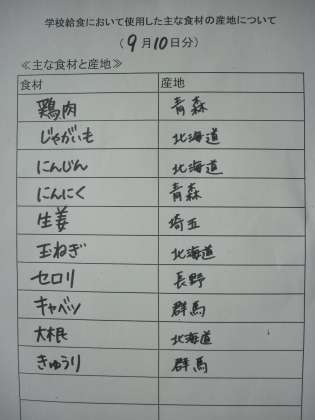 学校給食において使用した主な食材の産地について
(9月10日分)
≪主な食材と産地≫
食材 産地
鶏肉 青森
じゃがいも 北海道
にんじん 北海道
にんにく 青森
生姜 埼玉
玉ねぎ 北海道
セロリ 長野
キャベツ 群馬
大根 北海道
きゅうり 群馬